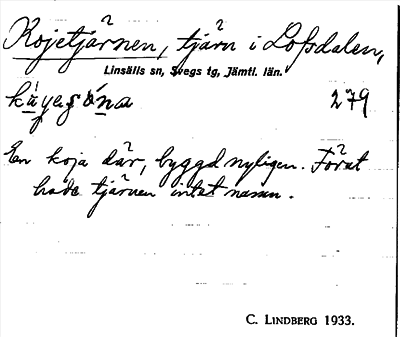 Kojetjärnen, tjärn i Lofsdalen,
Linsälls sn, Svegs tg, Jämtl. län.
279
En koja där, byggd nyligen. Förut
hade tjärnen intet namn.
C. LINDBERG 1933.